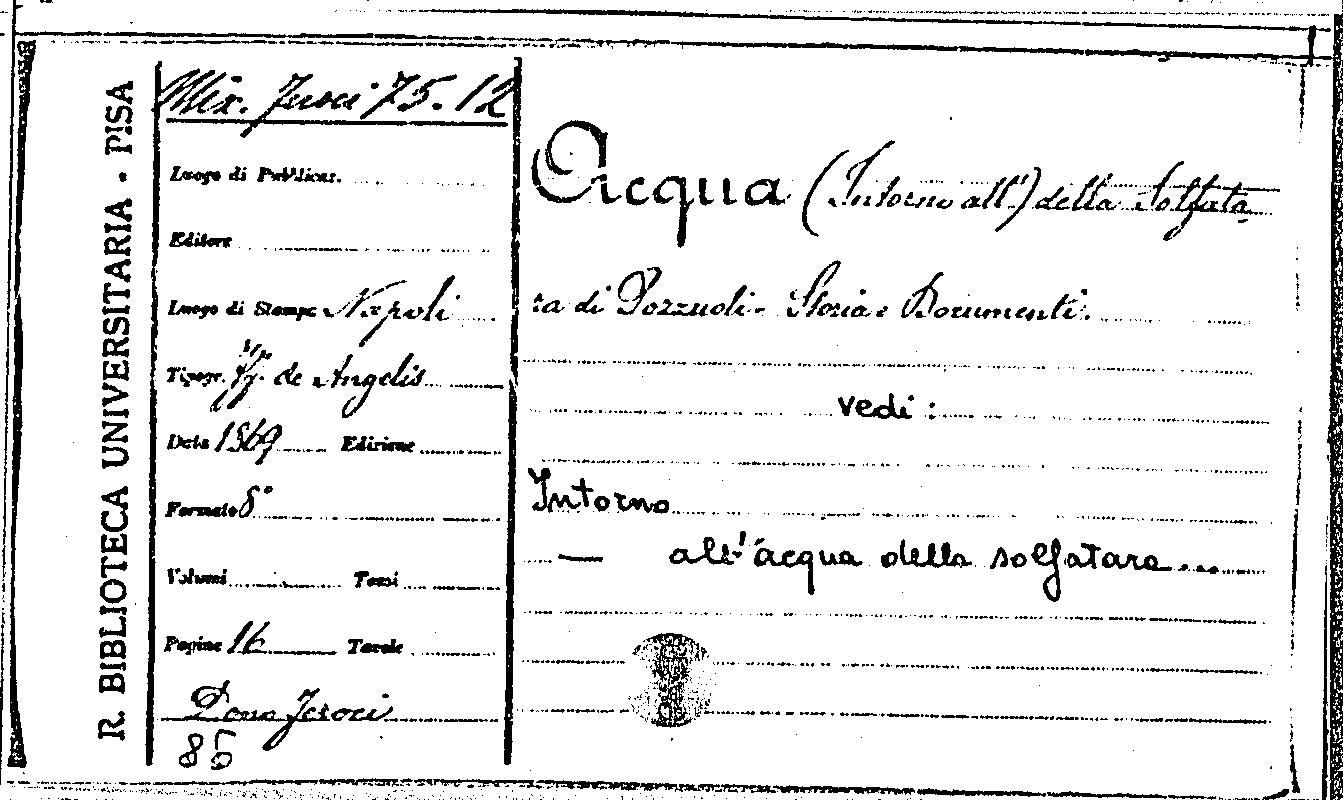 R. BIBLIOTECA UNIVERSITARIA - PISA
Mix. Feroci 75.12
Luogo di Pubblicaz.
Editore
Luogo di Stampa Napoli
Tipogr. de Angelis
Data 1869 Edizione
Formato 8°
Volumi Tomi
Pagine 16 Tavole
Dono Feroci
85
Acqua (Intorno all') della Solfata
ra di Pozzuoli - Storia e Documenti.
vedi :
Intorno
— all'acqua della solfatara...